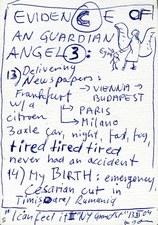 EVIDENCE OF
AN GUARDIAN
ANGEL 3:
13) Delivering
Newspapers:
Frankfurt → VIENNA → BUDAPEST
w/a → PARIS
citroen → Milano
3 axle car, night, fast, fog,
tired tired tired
never had an accident
14) My BIRTH: emergency,
Cesarian cut in
Timisoara/Rumania
"I can feel it